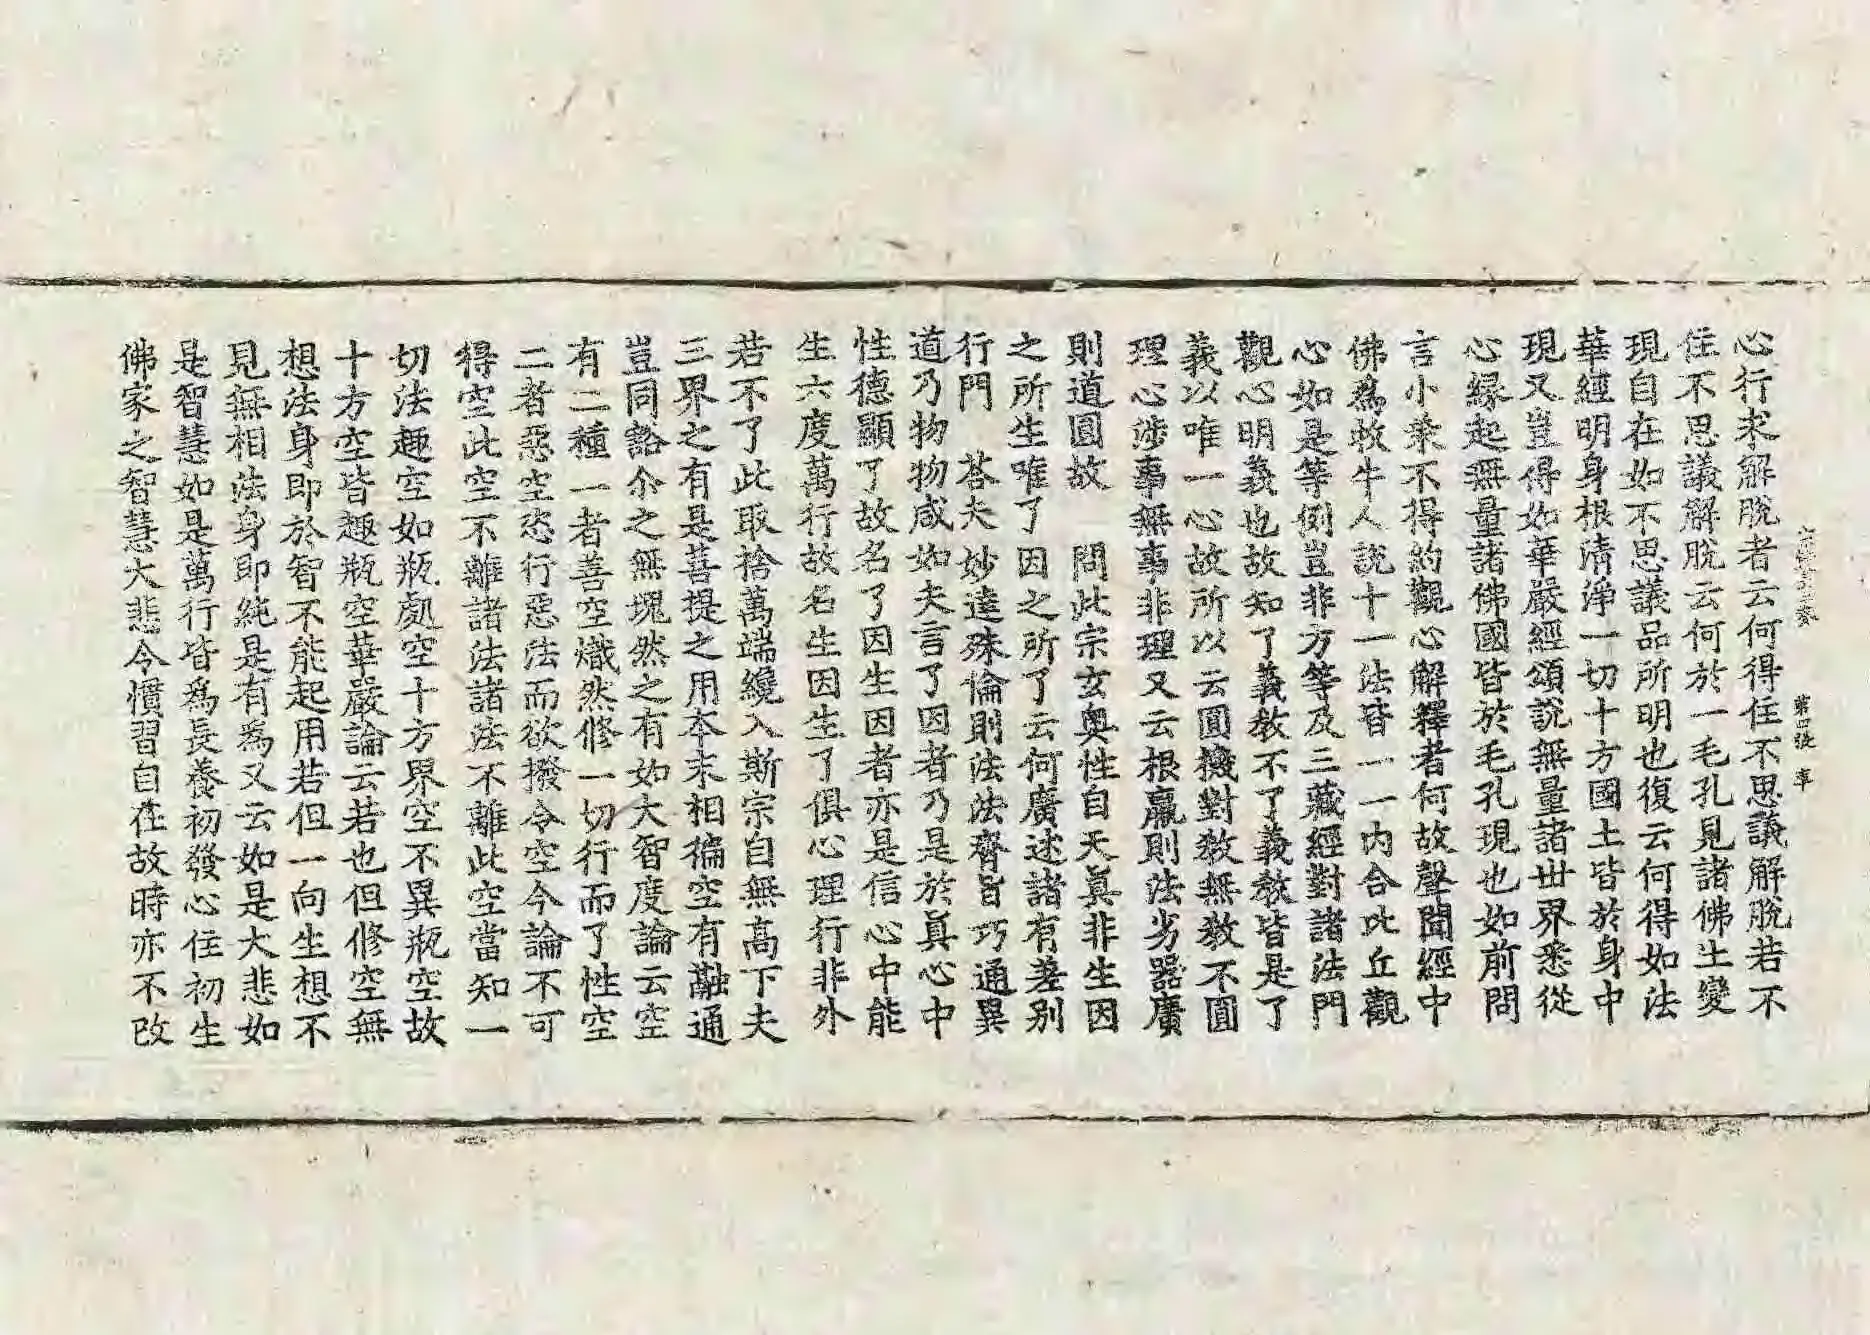 心行求解脫者云何得住不思議解脫若不
住不思議解脫云何於一毛孔見諸佛土變
現自在如不思議品所明也復云何得如法
華經明身根清淨一切十方國土皆於身中
現又豈得如華嚴經頌說無量諸世界悉從
心緣起無量諸佛國皆於毛孔現也如前問
言小乘不得約觀心解釋者何故聲聞經中
佛爲牧牛人說十一法皆一一內合比丘觀
心如是等例豈非方等及三藏經對諸法門
觀心明義也故知了義教不了義教皆是了
義以唯一心故所以云圓機對教無教不圓
理心涉事無事非理又云根羸則法劣器廣
則道圓故　問此宗玄奧性自天真非生因
之所生唯了因之所了云何廣述諸有差別
行門　荅夫妙達殊倫則法法齊旨巧通異
道乃物物咸如夫言了因者乃是於真心中
性德顯了故名了因生因者亦是信心中能
生六度萬行故名生因生了俱心理行非外
若不了此取捨萬端纔入斯宗自無高下夫
三界之有是菩提之用本末相徧空有融通
豈同豁尒之無塊然之有如大智度論云空
有二種一者善空熾然修一切行而了性空
二者惡空恣行惡法而欲撥令空今論不可
得空此空不離諸法諸法不離此空當知一
切法趣空如瓶處空十方界空不異瓶空故
十方空皆趣瓶空華嚴論云若也但修空無
想法身即於智不能起用若但一向生想不
見無相法身即純是有爲又云如是大悲如
是智慧如是萬行皆爲長養初發心住初生
佛家之智慧大悲令慣習自在故時亦不改